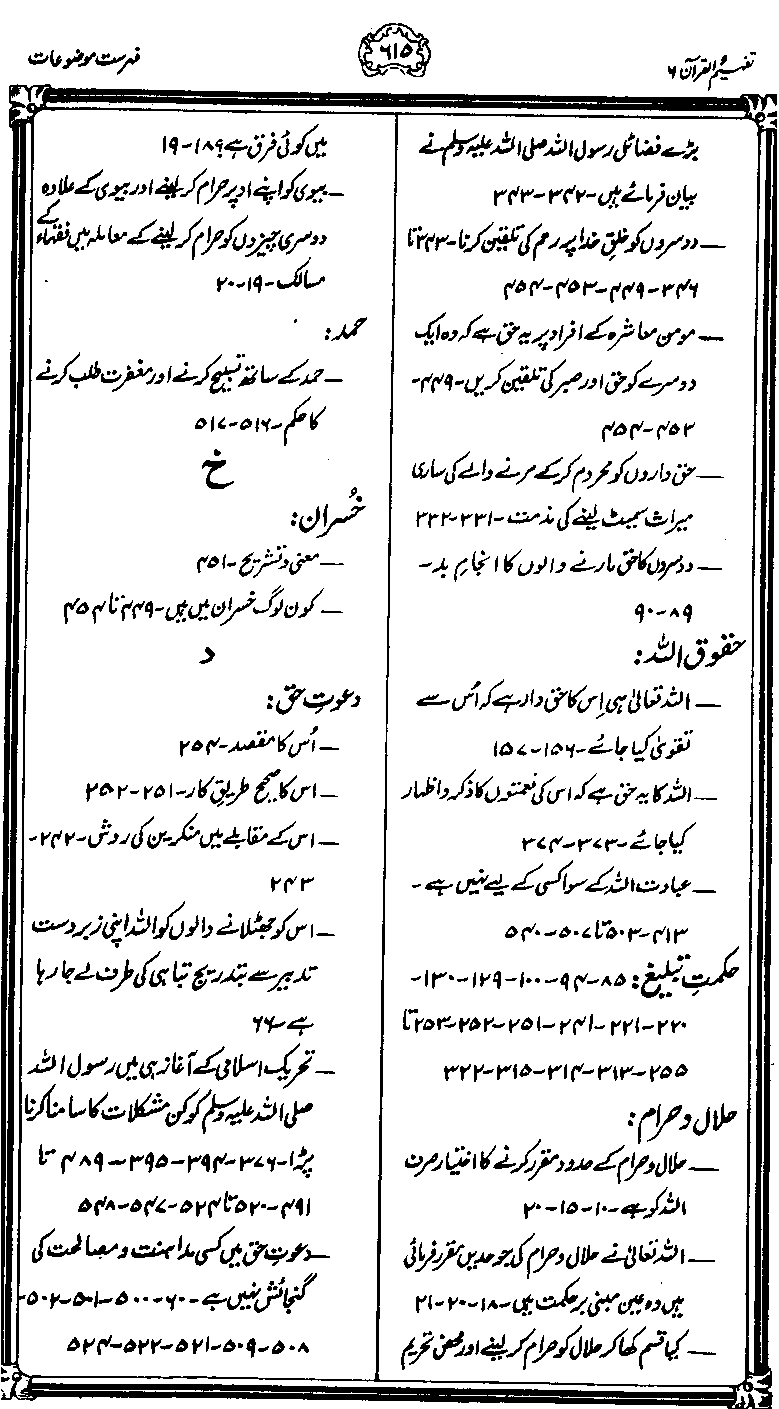 تفہیم القرآن ۶
۶۱۵
فہرست موضوعات
بڑے فضائل رسول اللہ صلی اللہ علیہ وسلم نے
بیان فرمائے ہیں-۳۴۲-۳۴۳
— دوسروں کو خلقِ خدا پر رحم کی تلقین کرنا-۳۴۳ تا
۳۴۶-۴۴۹-۴۵۳-۴۵۴
— مومن معاشرہ کے افراد پر یہ حق ہے کہ وہ ایک
دوسرے کو حق اور صبر کی تلقین کریں-۴۴۹-
۴۵۲-۴۵۴
— حق داروں کو محروم کرکے مرنے والے کی ساری
میراث سمیٹ لینے کی مذمت-۳۳۱-۳۳۲
— دوسروں کا حق مارنے والوں کا انجامِ بد-
۸۹-۹۰
حقوق اللہ:
— اللہ تعالیٰ ہی اِس کا حق دار ہے کہ اُس سے
تقویٰ کیا جائے-۱۵۶-۱۵۷
— اللہ کا یہ حق ہے کہ اس کی نعمتوں کا ذکر و اظہار
کیا جائے-۳۷۳-۳۷۴
— عبادت اللہ کے سوا کسی کے لیے نہیں ہے-
۴۱۳-۵۰۳ تا ۵۰۷-۵۴۰
حکمتِ تبلیغ: ۸۵-۹۴-۱۰۰-۱۲۹-۱۳۰-
۲۲۰-۲۲۱-۲۴۱-۲۵۱-۲۵۲-۲۵۳ تا
۲۵۵-۳۱۳-۳۱۴-۳۱۵-۳۲۲
حلال و حرام:
— حلال و حرام کے حدود مقرر کرنے کا اختیار صرف
اللہ کو ہے-۱۰-۱۵-۲۰
— اللہ تعالیٰ نے حلال و حرام کی جو حدیں مقرر فرمائی
ہیں وہ عین مبنی بر حکمت ہیں-۱۸-۲۰-۲۱
— کیا قسم کھا کر حلال کو حرام کر لینے اور محض تحریم
میں کوئی فرق ہے ۱۸۹-۱۹
— بیوی کو اپنے اوپر حرام کر لینے اور بیوی کے علاوہ
دوسری چیزوں کو حرام کر لینے کے معاملہ میں فقہاء کے
مسالک-۱۹-۲۰
حمد:
— حمد کے ساتھ تسبیح کرنے اور مغفرت طلب کرنے
کا حکم-۵۱۶-۵۱۷
خ
خُسران:
— معنی و تشریح-۴۵۱
— کون لوگ خسران میں ہیں-۴۴۹ تا ۴۵۴
د
دعوتِ حق:
— اُس کا مقصد-۲۵۴
— اس کا صحیح طریقِ کار-۲۵۱-۲۵۲
— اس کے مقابلے میں منکرین کی روش-۲۴۲-
۲۴۳
— اس کو جھٹلانے والوں کو اللہ اپنی زبردست
تدبیر سے بتدریج تباہی کی طرف لے جا رہا
ہے-۶۶
— تحریک اسلامی کے آغاز ہی میں رسول اللہ
صلی اللہ علیہ وسلم کو کن مشکلات کا سامنا کرنا
پڑا-۳۷۶-۳۹۴-۳۹۵-۴۸۹ تا
۴۹۱-۵۲۰ تا ۵۲۴-۵۴۷-۵۴۸
— دعوتِ حق میں کسی مداہنت و مصالحت کی
گنجائش نہیں ہے-۶۰-۵۰۰-۵۰۱-۵۰۲-
۵۰۸-۵۰۹-۵۲۱-۵۲۲-۵۲۴